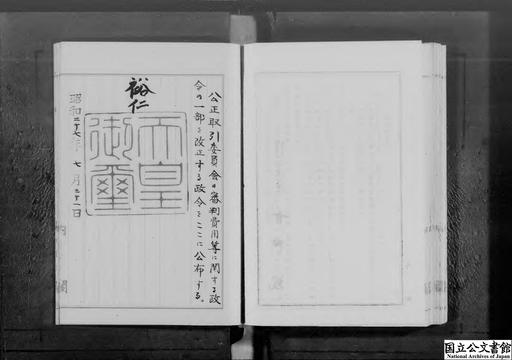 公正取引委員会の審判費用等に関する政
令の一部を改正する政令をここに公布する。
裕仁
天皇
御璽
昭和二十七年七月三十一日
内閣
国立公文書館
National Archives of Japan